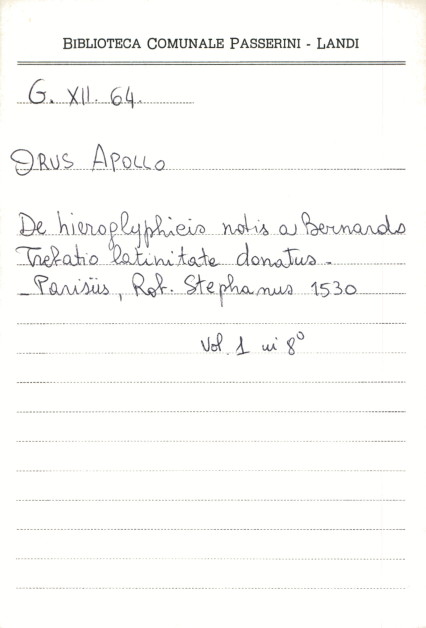 BIBLIOTECA COMUNALE PASSERINI - LANDI
G. XII. 64.
ORUS APOLLO
De hieroglyphicis notis a Bernardo
Trebatio latinitate donatus -
- Parisiis, Rob. Stephanus 1530
Vol. 1 in 8°